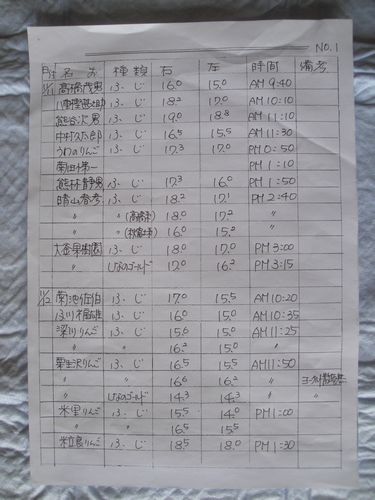 NO.1
月日 名 前 種 類 右 左 時間 備考
11/1 高橋茂男 ふ、じ 16.0 15.0 AM 9:40
ふ、じ 18.2 17.0 AM 10:10
熊谷次男 ふ、じ 19.0 18.8 AM 11:10
中村久太郎 ふ、じ 16.5 15.5 AM 11:30
うわのりんご ふ、じ 17.3 17.0 PM 0:50
菊田 一 PM 1:10
熊林静男 ふ、じ 17.3 16.0 PM 1:50
晴山春彦 ふ、じ 18.2 17.1 PM 2:40
〃 〃 18.0 17.2 〃
〃 〃 16.0 15.2 〃
大金果樹園 ふ、じ 18.0 17.0 PM 3:00
〃 しなのゴールド 17.0 16.2 PM 3:15
11/2 菊池佐伯 ふ、じ 17.0 15.5 AM 10:20
ふ、じ 16.0 15.0 AM 10:35
深川りんご ふ、じ 15.6 15.0 AM 11:25
〃 16.2 15.0 〃
菊生沢りんご ふ、じ 16.5 15.5 AM 11:50
〃 〃 16.6 16.2 〃
〃 しなのゴールド 14.3 14.3 〃 〃
米里りんご ふ、じ 15.5 14.0 PM 1:00
〃 〃 16.5 15.5
米立島りんご ふ、じ 18.5 18.0 PM 1:30